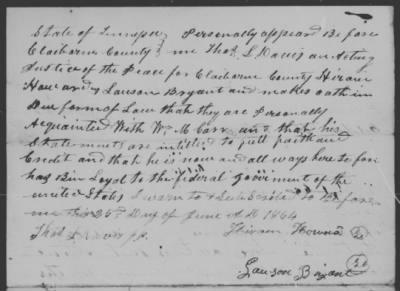 State of Tennessee } Personally appeared Before
Claiborne County } me Thos L Davis an Acting
Justice of the Peace for Claiborne County Hiram
Howard & Lauson Bryant and makes oath in
Due form of Law that they are Personally
Acquainted With Wm M Carr and that his
Statements are intitled to full faith and
Credit and that he is now and all ways here to fore
has Bin Loyal to the federal Goverment of the
united States Sworn to & Subscribed to Before
me this 25th Day of June AD 1864
Thos L Davis J.P. Hiram Howard
Lauson Bryant